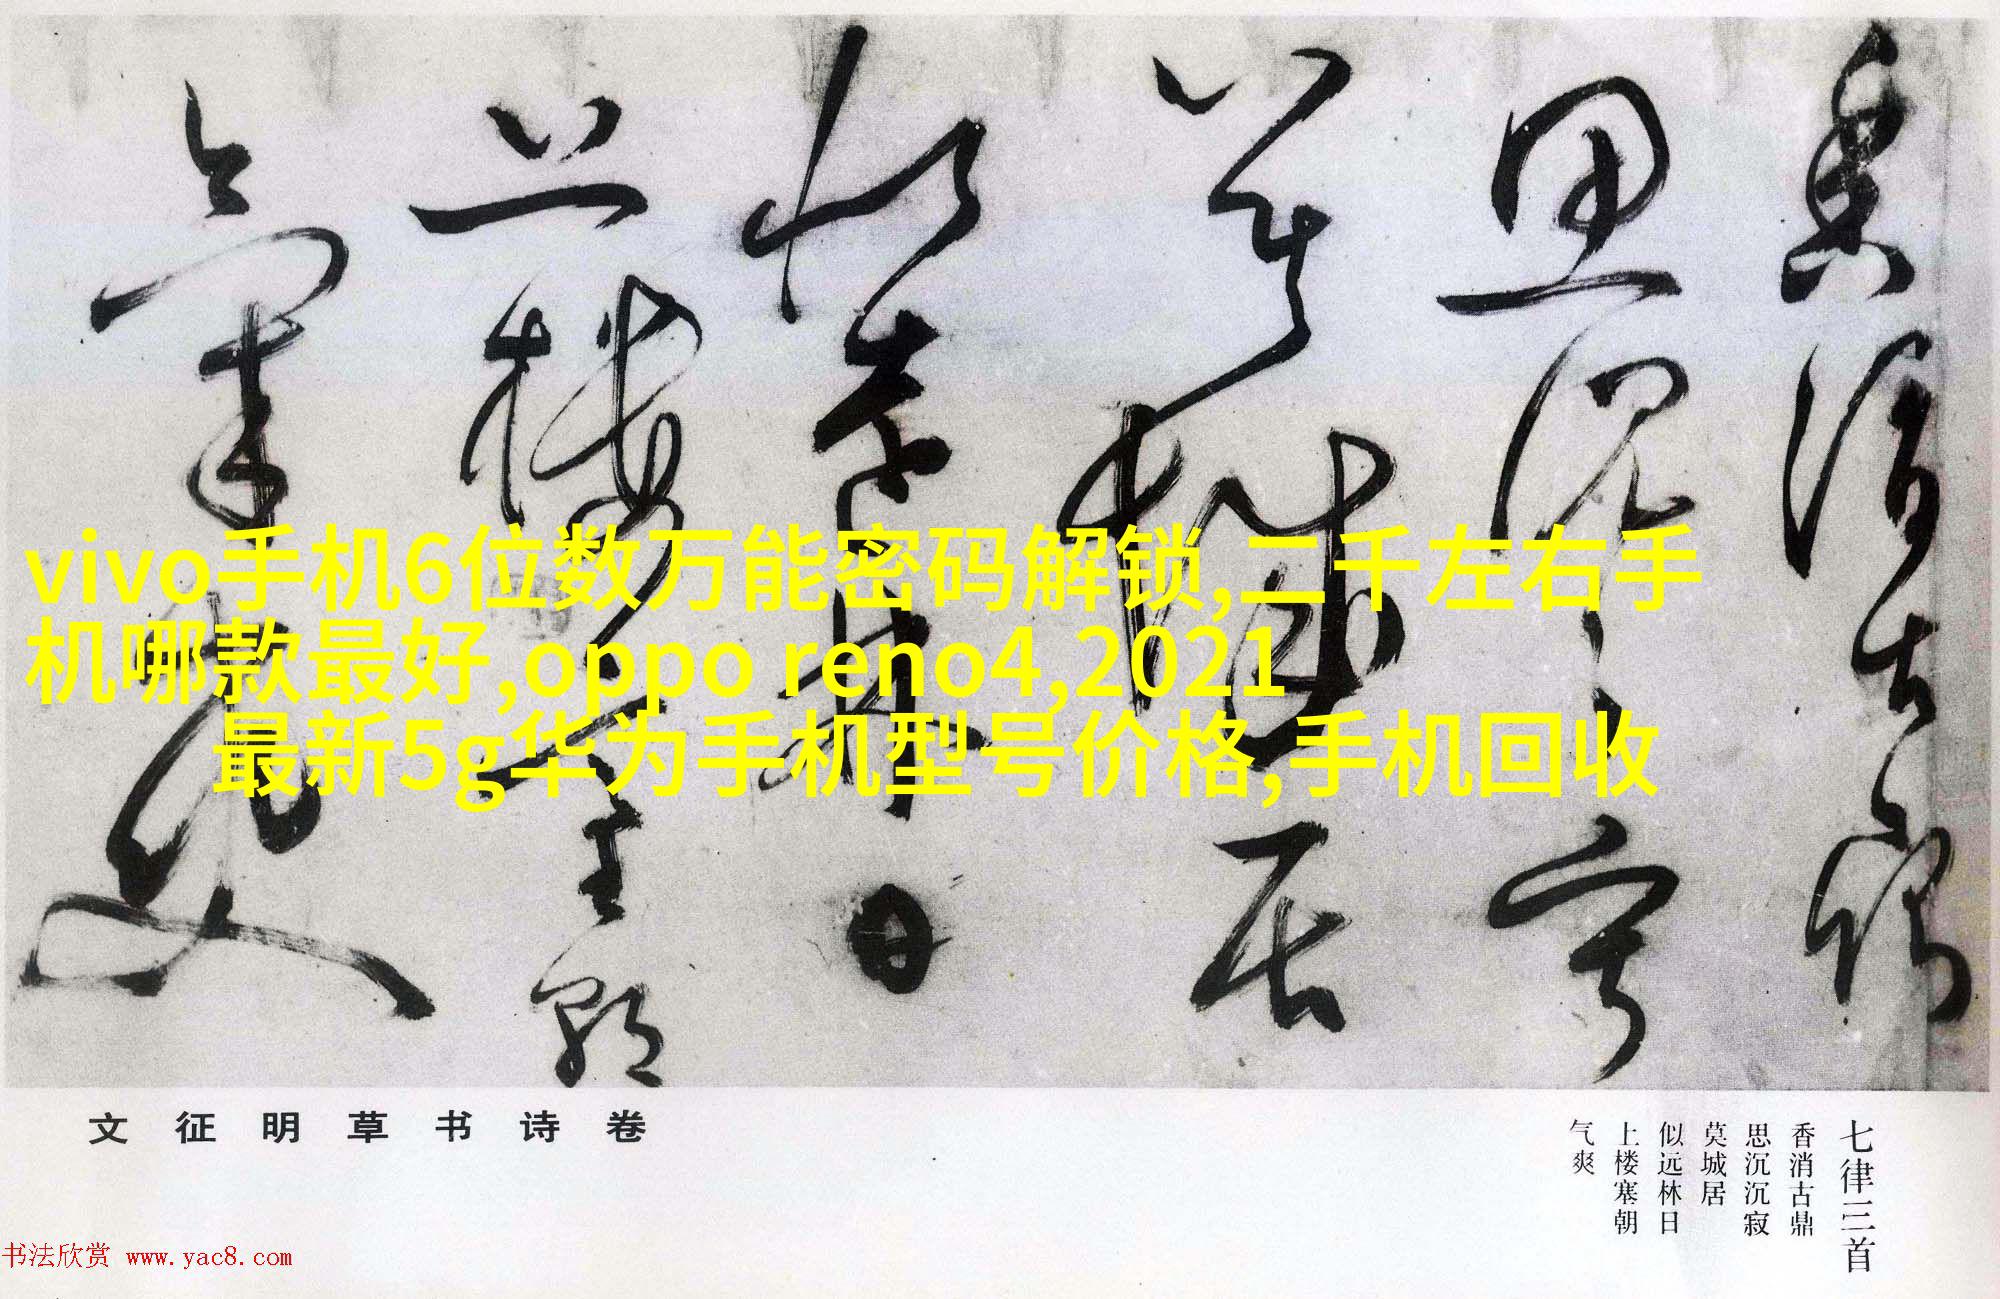 vivo手机6位数万能密码解锁,二千左右手
机哪款最好,oppo reno4,2021
最新5g华为手机型号价格,手机回收
香消古鼎
思沉沉寂
莫城居
似远林日
上楼塞朝
气爽
文征明草书诗卷
七律三首
香消古鼎
思沉沉寂
莫城居
似远林日
上楼塞朝
气爽
书法欣赏 www.yac8.com